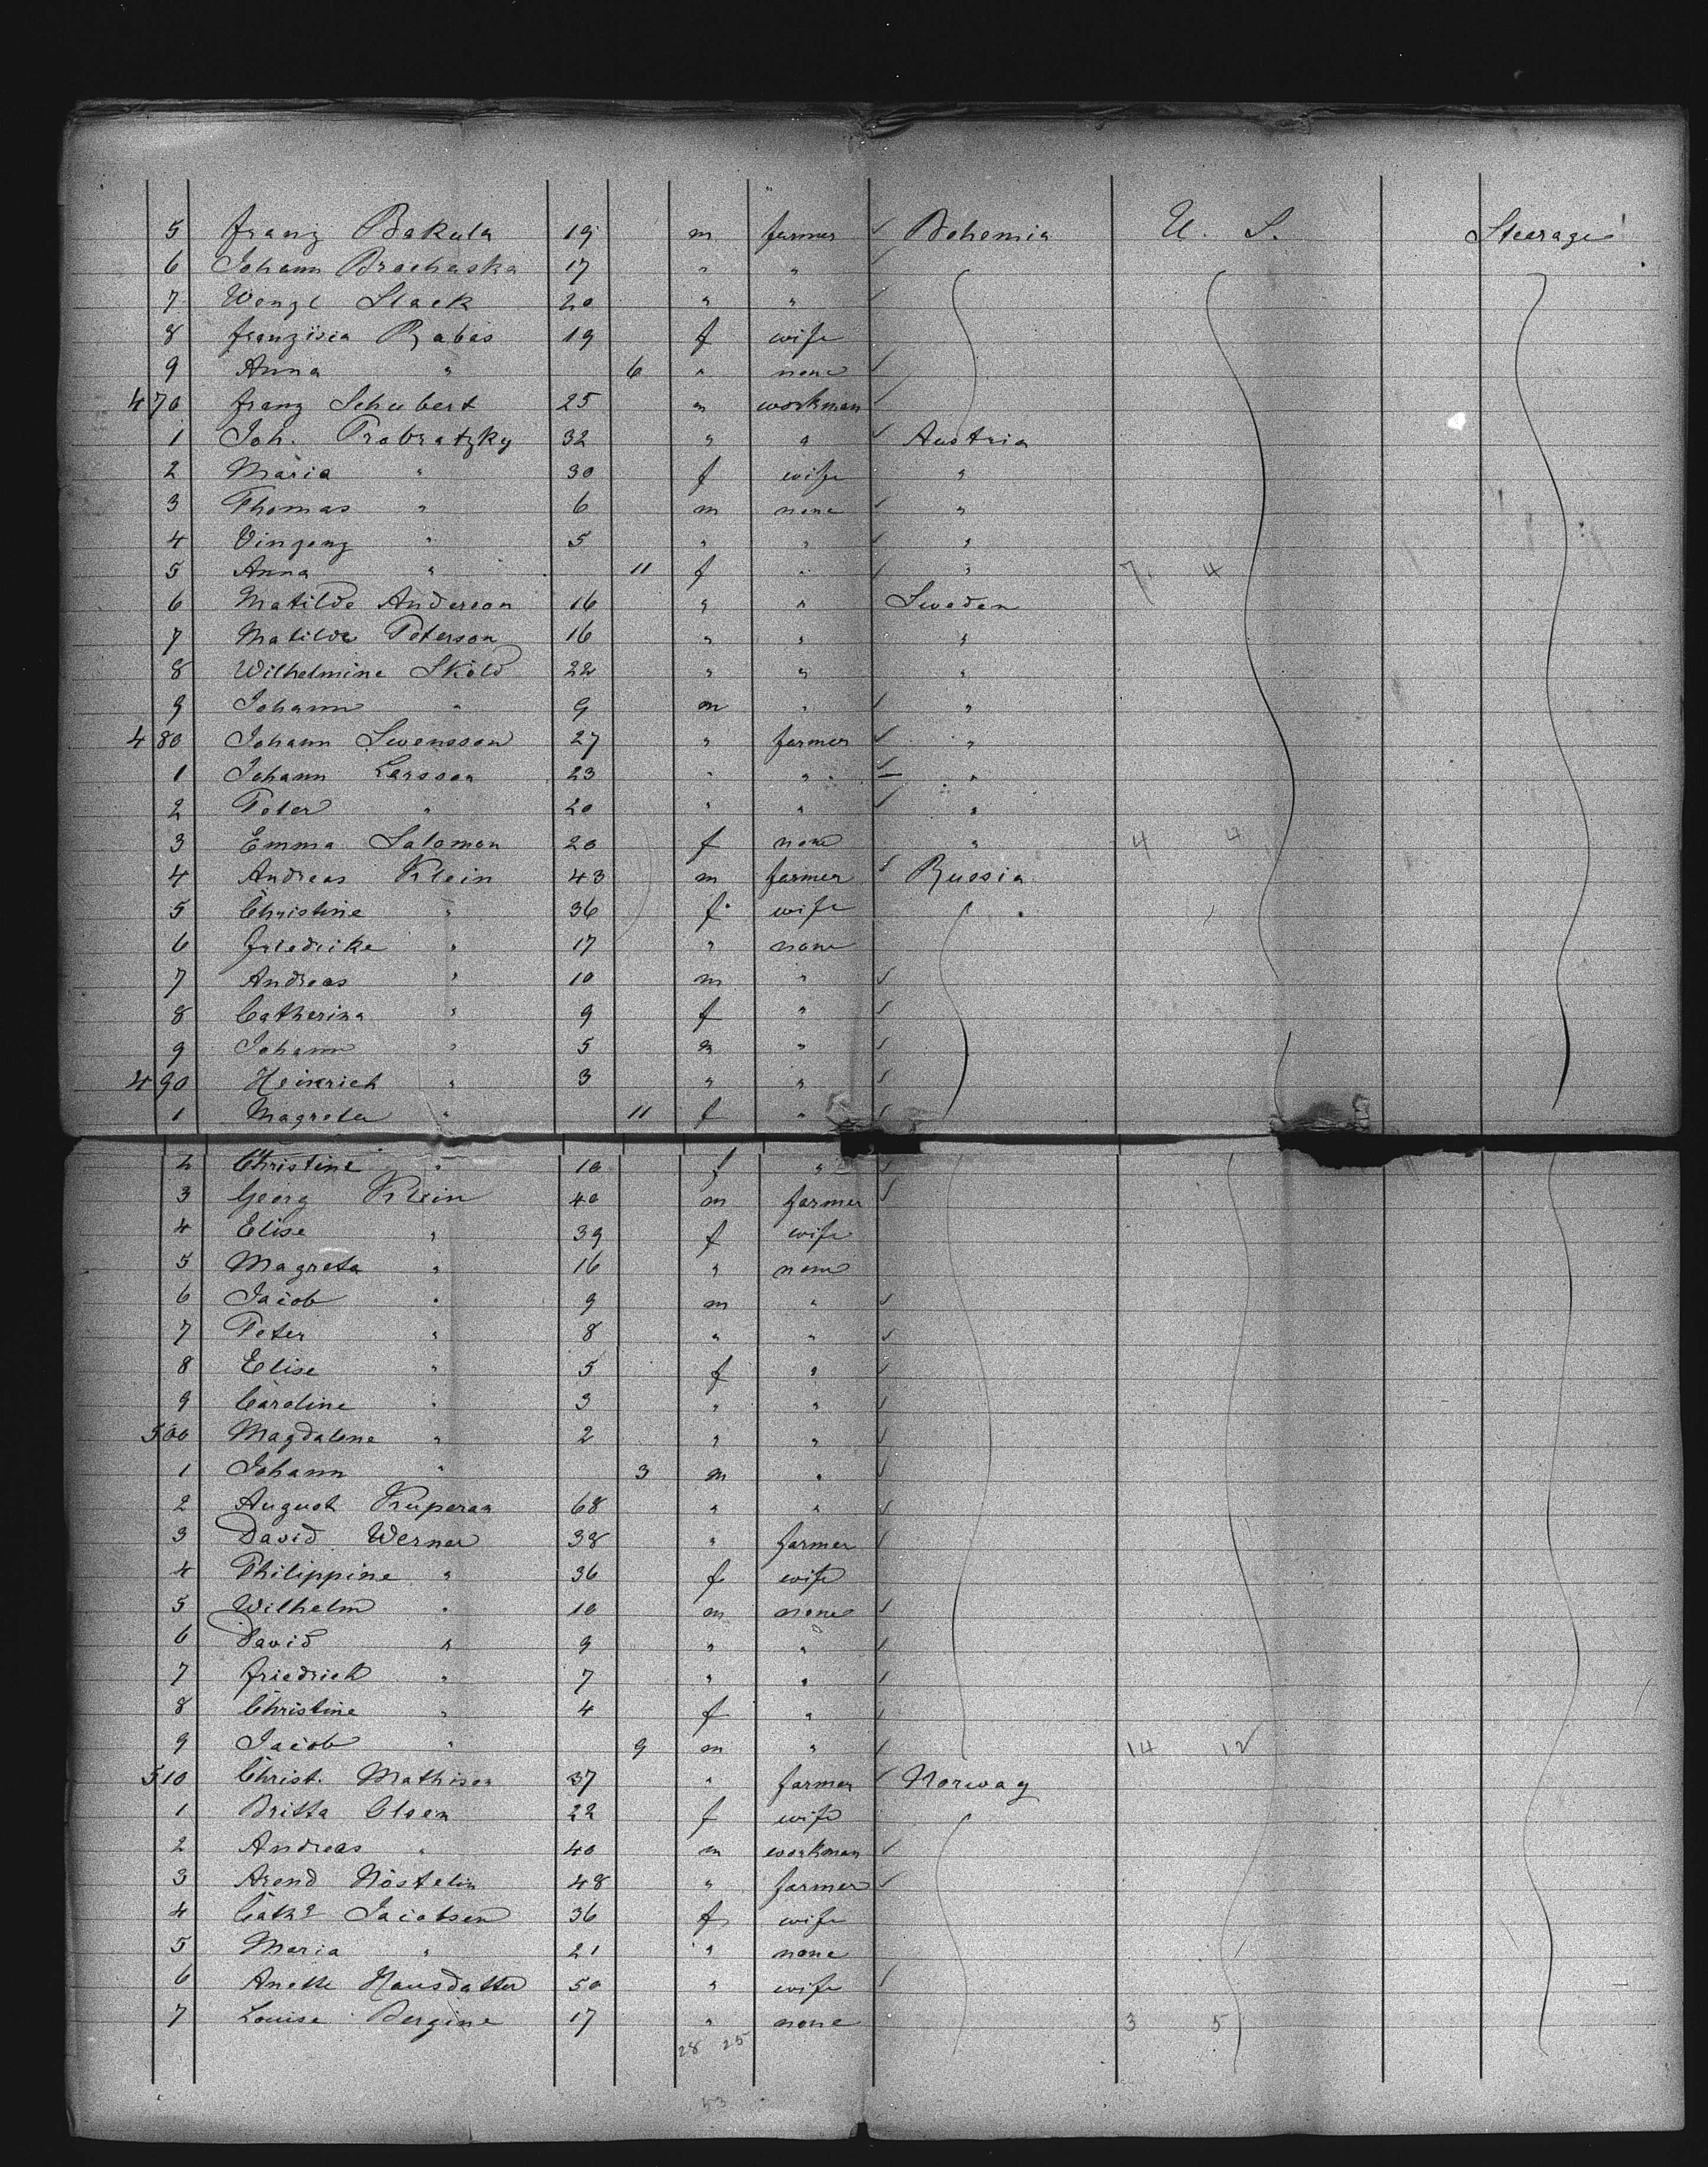 5 Franz Bakula 19 m farmer ✓ Bohemia U. S. Steerage
6 Johann Brochaska 17 " " ✓
7 Wenzl Slack 20 " " ✓
8 Franzisca Rabas 19 f wife
9 Anna " 6 " none ✓
470 Franz Schubert 25 m workman ✓
1 Joh. Probratzky 32 " " ✓ Austria
2 Maria " 30 f wife "
3 Thomas " 6 m none ✓ "
4 Vinzenz " 5 " " ✓ "
5 Anna " 11 f " ✓ " 7 4
6 Matilde Anderson 16 " " Sweden
7 Matilde Peterson 16 " " "
8 Wilhelmine Sköld 22 " " "
9 Johann " 9 m " ✓ "
480 Johann Swensson 27 " farmer ✓ "
1 Johann Larsson 23 " " ✓ "
2 Peter " 20 " " ✓ "
3 Emma Salomon 20 f none " 4 4
4 Andreas Klein 43 m farmer ✓ Russia
5 Christine " 36 f wife
6 Friedrike " 17 " none
7 Andreas " 10 m " ✓
8 Catherina " 9 f " ✓
9 Johann " 5 m " ✓
490 Heinrich " 3 " " ✓
1 Magreta " 11 f " ✓
2 Christine " 10 f " ✓
3 Georg Klein 40 m farmer ✓
4 Elise " 39 f wife
5 Magreta " 16 " none
6 Jacob " 9 m " ✓
7 Peter " 8 " " ✓
8 Elise " 5 f " ✓
9 Caroline " 3 " " ✓
500 Magdalene " 2 " " ✓
1 Johann " 3 m " ✓
2 August Kuperan 68 " " ✓
3 David Werner 38 " farmer ✓
4 Philippine " 36 f wife
5 Wilhelm " 10 m none ✓
6 David " 9 " " ✓
7 Friedrich " 7 " " ✓
8 Christine " 4 f " ✓
9 Jacob " 9 m " ✓ 14 12
510 Christ. Mathisen 37 " farmer ✓ Norway
1 Britta Olsen 22 f wife
2 Andreas " 40 m workman ✓
3 Arend Nöstelin 48 " farmer ✓
4 Cath. Jacobsen 36 f wife
5 Maria " 21 " none
6 Anette Hansdatter 50 " wife ✓
7 Louise Bergine 17 " none 3 5
28 25
53